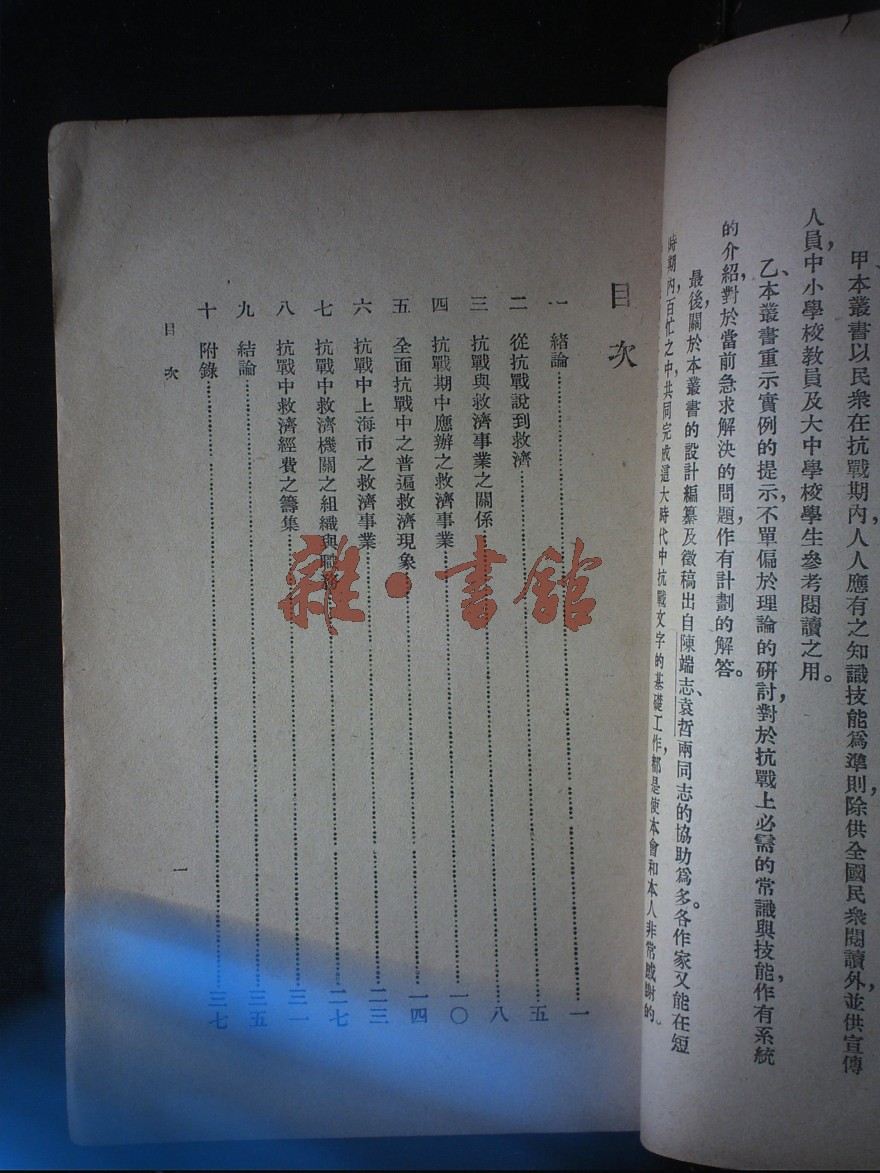 甲、本叢書以民衆在抗戰期內，人人應有之知識技能爲準則，除供全國民衆閱讀外，並供宣傳
人員，中小學校教員及大中學校學生參考閱讀之用。
乙、本叢書重示實例的提示，不單偏於理論的研討，對於抗戰上必需的常識與技能，作有系統
的介紹，對於當前急求解決的問題，作有計劃的解答。
最後，關於本叢書的設計編纂及徵稿，出自陳端志、袁哲兩同志的協助爲多。各作家又能在短
時期內，百忙之中，共同完成這大時代中抗戰文字的基礎工作，都是使本會和本人非常感謝的。
目次
一 緒論……一
二 從抗戰說到救濟……五
三 抗戰與救濟事業之關係……八
四 抗戰期中應辦之救濟事業……一〇
五 全面抗戰中之普遍救濟現象……一四
六 抗戰中上海市之救濟事業……二三
七 抗戰中救濟機關之組織與職務……二七
八 抗戰中救濟經費之籌集……三一
九 結論……三五
十 附錄……三七
目次
一
雜·書館